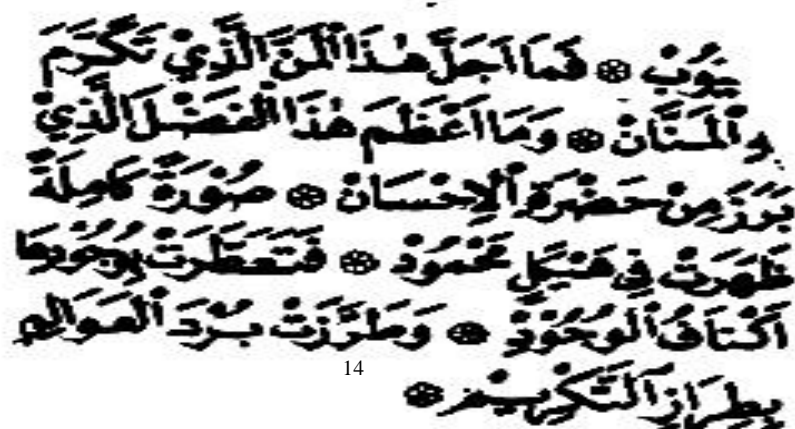 يُوْبْ ۞ فَمَا اَجَلَّ هٰذَا الْمَنَّ الَّذِيْ تَكَرَّمَ
الْمَنَّانْ ۞ وَمَا اَعْظَمَ هٰذَا الْفَضْلَ الَّذِيْ
بَرَزَ مِنْ حَضْرَةِ الْاِحْسَانْ ۞ صُوْرَةٌ كَامِلَةٌ
ظَهَرَتْ فِي هَيْكَلٍ مَحْمُوْدْ ۞ فَتَعَطَّرَتْ بِوُجُوْدِهَا
اَكْنَافُ الْوُجُوْدْ ۞ وَطَرَّزَتْ بُرْدَ الْعَوَالِمِ
14
بِطِرَازِ التَّكْرِيْمْ ۞